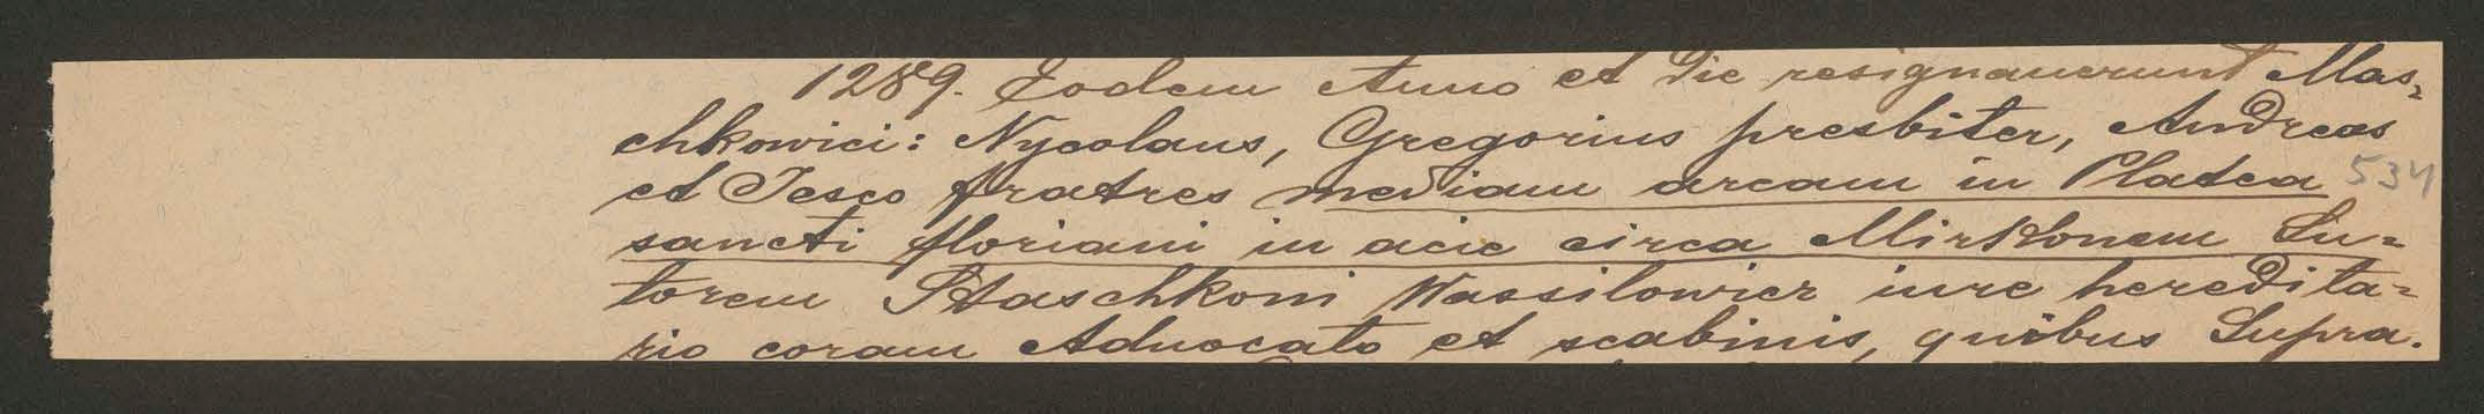 1289. Eodem Anno et Die resignauerunt Mas=
chkowici: Nycolaus, Gregorius presbiter, Andreas
et Jesco fratres mediam aream in Platea 534
sancti floriani in acie circa Mirklonem Su=
torem Staschkoni Wassilowicz iure heredita=
rio coram Aduocato et scabinis, quibus Supra.